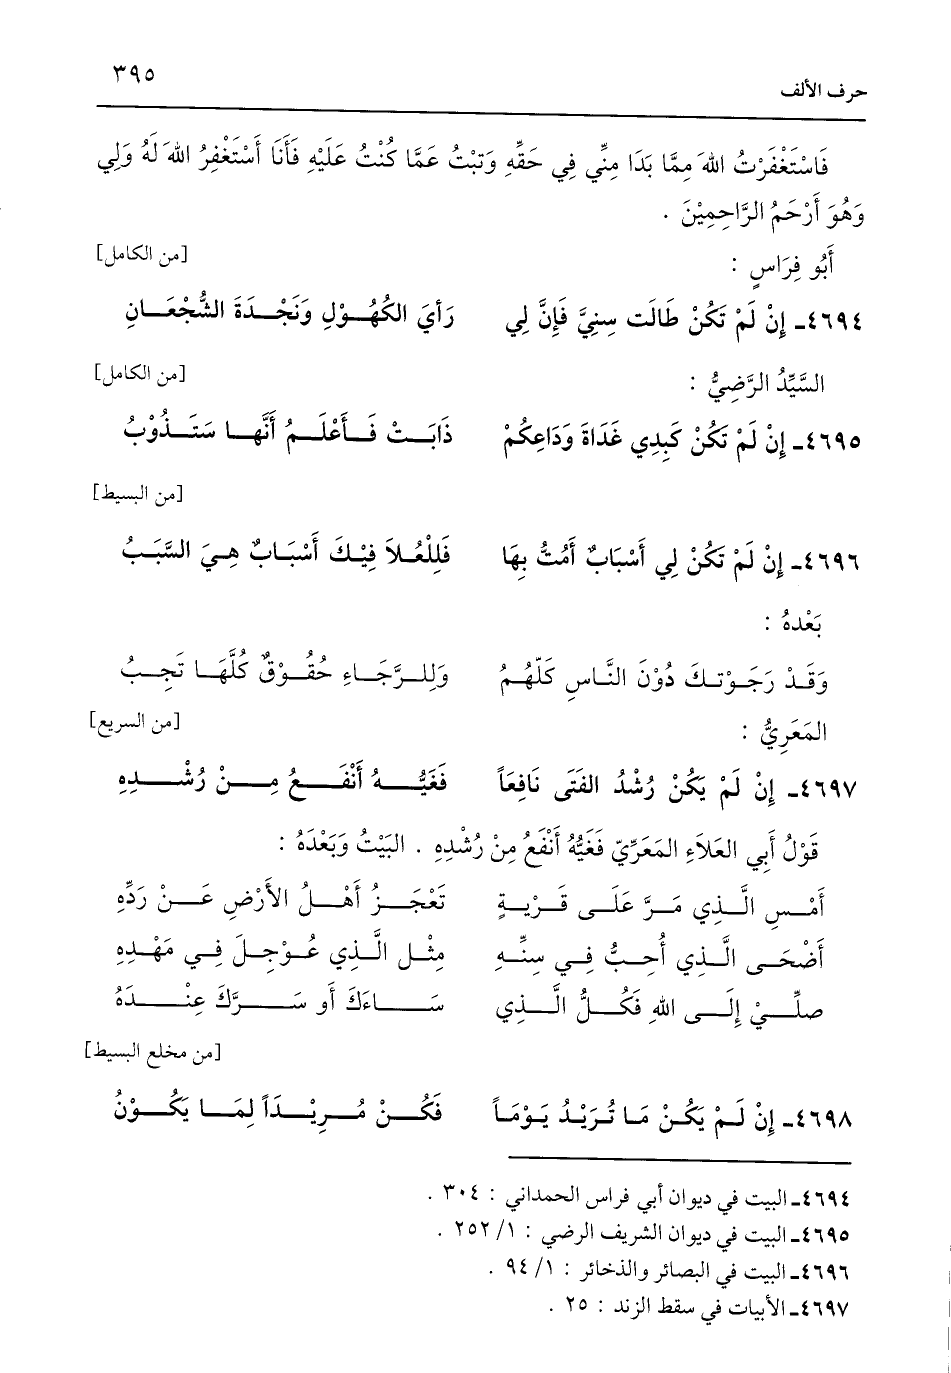 حرف الألف ٣٩٥
فَاسْتَغْفَرْتُ اللهَ مِمَّا بَدَا مِنِّي فِي حَقِّهِ وَتبْتُ عَمَّا كُنْتُ عَلَيْهِ فَأَنَا أَسْتَغْفِرُ اللهَ لَهُ وَلِي
وَهُوَ أَرْحَمُ الرَّاحِمِيْنَ .
أَبُو فِرَاسٍ : [من الكامل]
٤٦٩٤ـ إِنْ لَمْ تَكُنْ طَالَت سِنِيَّ فَإِنَّ لِي رَأيَ الكُهُوْلِ وَنَجْدَةَ الشُّجْعَانِ
السَّيِّدُ الرَّضِيُّ : [من الكامل]
٤٦٩٥ـ إِنْ لَمْ تَكُنْ كَبِدِي غَدَاةَ وَدَاعِكُمْ ذَابَتْ فَأَعْلَمُ أَنَّها سَتَذُوْبُ
[من البسيط]
٤٦٩٦ـ إِنْ لَمْ تَكُنْ لِي أَسْبَابٌ أَمُتُّ بِهَا فَلِلْعُلاَ فِيْكَ أَسْبَابٌ هِيَ السَّبَبُ
بَعْدهُ :
وَقَدْ رَجَوْتكَ دُوْنَ النَّاسِ كَلّهُمُ وَلِلرَّجَاءِ حُقُوْقٌ كُلَّهَا تَجِبُ
المَعَرِيُّ : [من السريع]
٤٦٩٧ـ إِنْ لَمْ يَكُنْ رُشْدُ الفَتَى نَافِعَاً فَغَيُّهُ أَنْفَعُ مِنْ رُشْدِهِ
قَوْلُ أَبِي العَلاَءِ المَعَرِّيّ فَغَيُّهُ أَنْفَعُ مِنْ رُشْدِهِ . البَيْتُ وَبَعْدَهُ :
أَمْسِ الَّذِي مَرَّ عَلَى قَرْيَةٍ تَعْجَزُ أَهْلُ الأَرْضِ عَنْ رَدِّهِ
أَضْحَى الَّذِي أُحِبُّ فِي سِنِّهِ مِثْل الَّذِي عُوْجِلَ فِي مَهْدِهِ
صلِّيْ إِلَى اللهِ فَكُلُّ الَّذِي سَاءَكَ أَو سَرَّكَ عِنْدَهُ
[من مخلع البسيط]
٤٦٩٨ـ إِنْ لَمْ يَكُنْ مَا تُرَيْدُ يَوْمَاً فَكُنْ مُرِيْدَاً لِمَا يَكُوْنُ
٤٦٩٤ـ البيت في ديوان أبي فراس الحمداني : ٣٠٤ .
٤٦٩٥ـ البيت في ديوان الشريف الرضي : ١/ ٢٥٢ .
٤٦٩٦ـ البيت في البصائر والذخائر : ١/ ٩٤ .
٤٦٩٧ـ الأبيات في سقط الزند : ٢٥ .